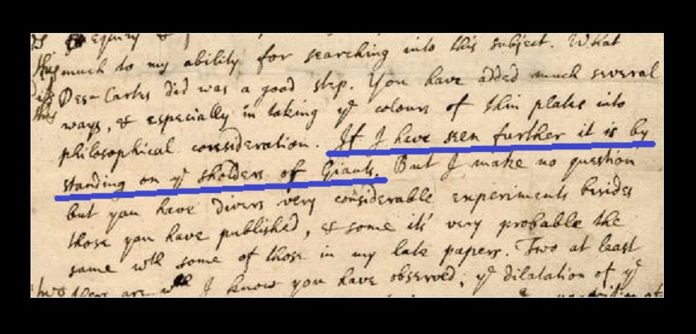 equiry &
much to my ability for searching into this subject. What
Des-Cartes did was a good step. You have added much several
ways, & especially in taking yᵉ colours of thin plates into
philosophical consideration. If I have seen further it is by
standing on yᵉ sholders of Giants. But I make no question
but you have divers very considerable experiments besides
those you have published, & some it's very probable the
same wth some of those in my late papers. Two at least
there are wch I know you have observed; yᵉ dilatation of yᵉ